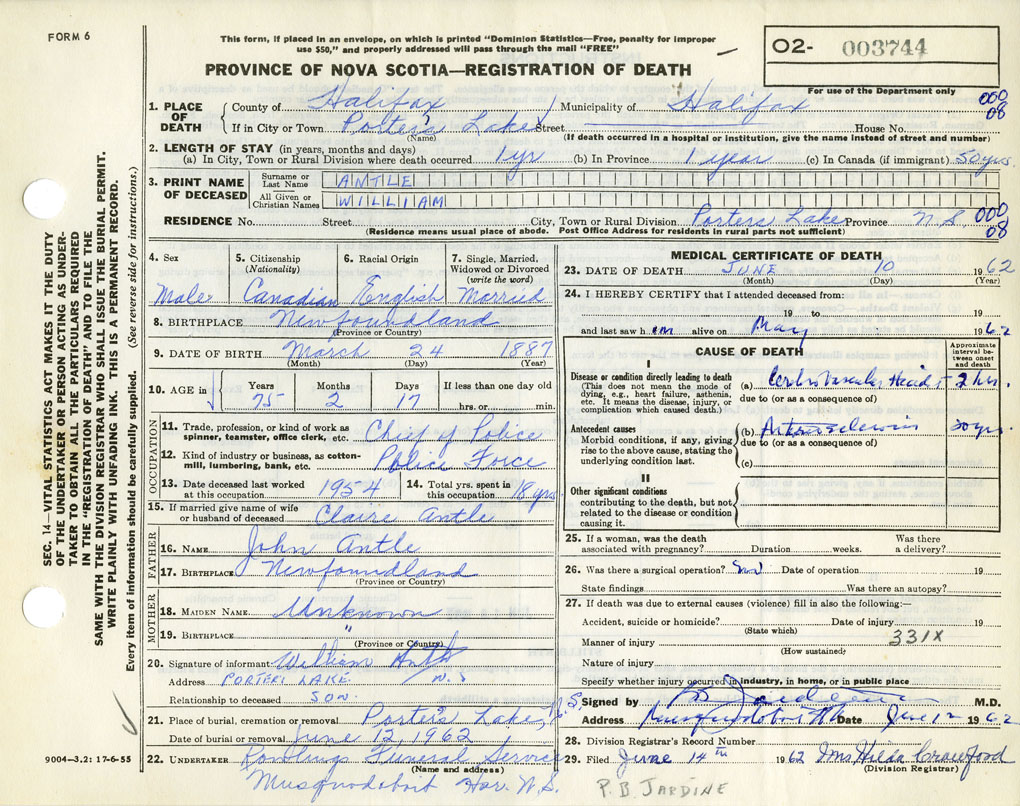 FORM 6
This form, if placed in an envelope, on which is printed "Dominion Statistics—Free, penalty for improper
use $50," and properly addressed will pass through the mail "FREE"
O2- 003744
PROVINCE OF NOVA SCOTIA—REGISTRATION OF DEATH
For use of the Department only
000
08
1. PLACE OF DEATH
County of Halifax Municipality of Halifax
If in City or Town Porter's Lake Street House No.
(Name) (If death occurred in a hospital or institution, give the name instead of street and number)
2. LENGTH OF STAY (in years, months and days)
(a) In City, Town or Rural Division where death occurred 1 yr (b) In Province 1 year (c) In Canada (if immigrant) 50 yrs.
3. PRINT NAME OF DECEASED
Surname or Last Name ANTLE
All Given or Christian Names WILLIAM
RESIDENCE No. Street City, Town or Rural Division Porters Lake Province N.S.
000
08
(Residence means usual place of abode. Post Office Address for residents in rural parts not sufficient)
4. Sex
Male
5. Citizenship
(Nationality)
Canadian
6. Racial Origin
English
7. Single, Married,
Widowed or Divorced
(write the word)
Married
8. BIRTHPLACE Newfoundland
(Province or Country)
9. DATE OF BIRTH March 24 1887
(Month) (Day) (Year)
10. AGE in
Years Months Days If less than one day old
75 2 17 hrs. or min.
OCCUPATION
11. Trade, profession, or kind of work as Chief of Police
spinner, teamster, office clerk, etc.
12. Kind of industry or business, as cotton-
mill, lumbering, bank, etc. Police Force
13. Date deceased last worked
at this occupation 1954
14. Total yrs. spent in
this occupation 18 yrs
15. If married give name of wife
or husband of deceased Claire Antle
FATHER
16. NAME John Antle
17. BIRTHPLACE Newfoundland
(Province or Country)
MOTHER
18. MAIDEN NAME Unknown
19. BIRTHPLACE "
(Province or Country)
20. Signature of informant William Antle
Address PORTERS LAKE N.S
Relationship to deceased SON
21. Place of burial, cremation or removal Porter's Lake, N.S
Date of burial or removal June 12, 1962
22. UNDERTAKER Rawlings Funeral Service
(Name and address)
Musquodoboit Har. N.S.
MEDICAL CERTIFICATE OF DEATH
23. DATE OF DEATH JUNE 10 1962
(Month) (Day) (Year)
24. I HEREBY CERTIFY that I attended deceased from:
19 to 19
and last saw him alive on May 1962
CAUSE OF DEATH
Approximate
interval be-
tween onset
and death
I
Disease or condition directly leading to death
(This does not mean the mode of
dying, e.g., heart failure, asthenia,
etc. It means the disease, injury, or
complication which caused death.)
(a) 2 hrs.
due to (or as a consequence of)
Antecedent causes
Morbid conditions, if any, giving
rise to the above cause, stating the
underlying condition last.
(b) yrs.
due to (or as a consequence of)
(c)
II
Other significant conditions
contributing to the death, but not
related to the disease or condition
causing it.
25. If a woman, was the death
associated with pregnancy? Duration weeks.
Was there
a delivery?
26. Was there a surgical operation? Date of operation 19
State findings Was there an autopsy?
27. If death was due to external causes (violence) fill in also the following:—
Accident, suicide or homicide? Date of injury 19
(State which)
Manner of injury 331X
(How sustained)
Nature of injury
Specify whether injury occurred in industry, in home, or in public place
Signed by M.D.
Address Musquodoboit Date June 12 1962
28. Division Registrar's Record Number
29. Filed June 14th 1962 Mrs Hilda Crawford
(Division Registrar)
P.B. JARDINE
9004—3.2: 17-6-55
SEC. 14—VITAL STATISTICS ACT MAKES IT THE DUTY
OF THE UNDERTAKER OR PERSON ACTING AS UNDER-
TAKER TO OBTAIN ALL THE PARTICULARS REQUIRED
IN THE "REGISTRATION OF DEATH" AND TO FILE THE
SAME WITH THE DIVISION REGISTRAR WHO SHALL ISSUE THE BURIAL PERMIT.
WRITE PLAINLY WITH UNFADING INK. THIS IS A PERMANENT RECORD.
Every item of information should be carefully supplied. (See reverse side for instructions.)